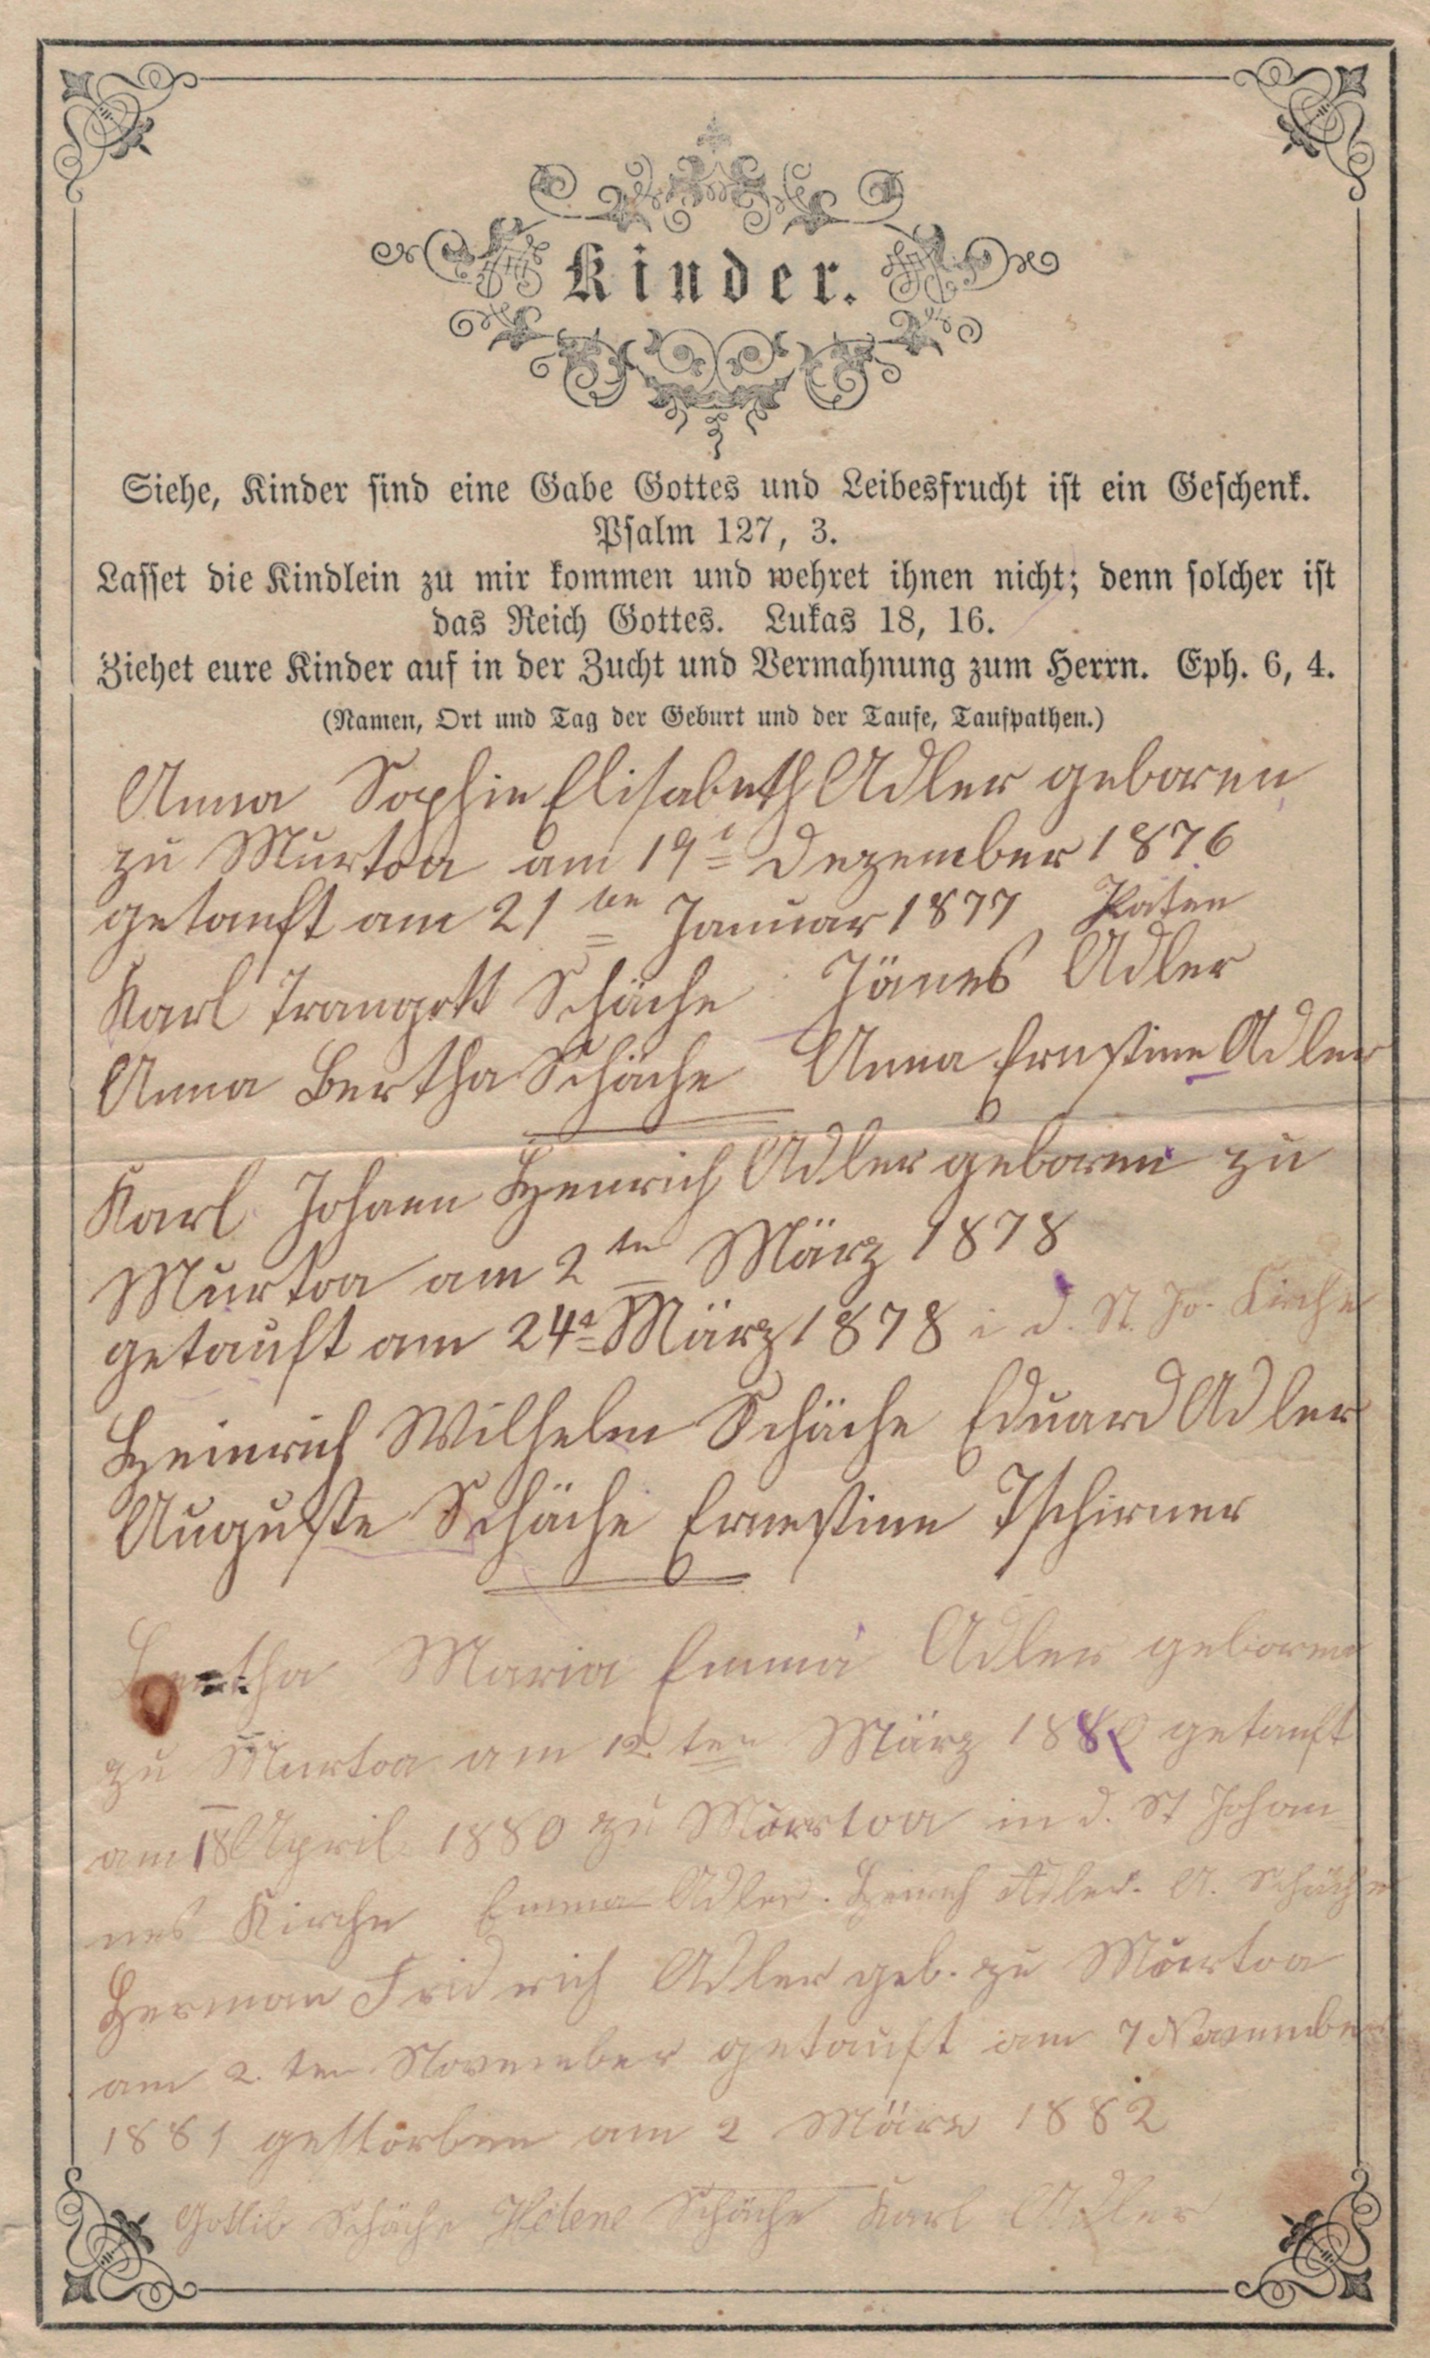 Kinder.
Siehe, Kinder sind eine Gabe Gottes und Leibesfrucht ist ein Geschenk.
Psalm 127, 3.
Lasset die Kindlein zu mir kommen und wehret ihnen nicht; denn solcher ist
das Reich Gottes. Lukas 18, 16.
Ziehet eure Kinder auf in der Zucht und Vermahnung zum Herrn. Eph. 6, 4.
(Namen, Ort und Tag der Geburt und der Taufe, Taufpathen.)
Anna Sophie Elisabeth Adler geboren
zu Murtoa am 19t Dezember 1876
getauft am 21ten Januar 1877 Paten
Karl Traugott Schäche Jänes Adler
Anna Bertha Schäche Anna Ernstine Adler
Karl Johann Heinrich Adler geboren zu
Murtoa am 2ten März 1878
getauft am 24t März 1878 i d. St. Jo. Kirche
Heinrich Wilhelm Schäche Eduard Adler
Auguste Schäche Ernestine Tschirner
Bertha Maria Emma Adler geboren
zu Murtoa am 12ten März 1880 getauft
am 18 April 1880 zu Murtoa in d. St Johan
nes Kirche Emma Adler. Heinrich Adler. A. Schäche
Herman Fridrich Adler geb. zu Murtoa
am 2.ten November getauft am 7 November
1881 gestorben am 2 März 1882
Gottlib Schäche Helene Schäche Karl Adler